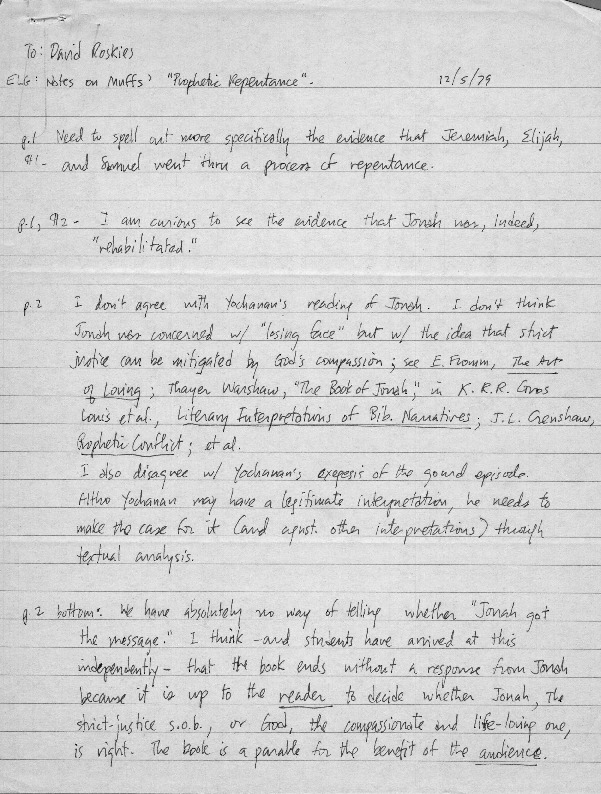 To: David Roskies
ELG: Notes on Muffs' "Prophetic Repentance". 12/5/79
p.1 Need to spell out more specifically the evidence that Jeremiah, Elijah,
¶1- and Samuel went thru a process of repentance.
p.1, ¶2 - I am curious to see the evidence that Jonah was, indeed,
"rehabilitated."
p.2 I don't agree with Yochanan's reading of Jonah. I don't think
Jonah was concerned w/ "losing face" but w/ the idea that strict
justice can be mitigated by God's compassion; see E. Fromm, The Art
of Loving; Thayer Warshaw, "The Book of Jonah," in K.R.R. Gros
Louis et al., Literary Interpretations of Bib. Narratives; J.L. Crenshaw,
Prophetic Conflict; et al.
I also disagree w/ Yochanan's exegesis of the gourd episode.
Altho Yochanan may have a legitimate interpretation, he needs to
make the case for it (and agnst. other interpretations) through
textual analysis.
p.2 bottom: We have absolutely no way of telling whether "Jonah got
the message." I think - and students have arrived at this
independently - that the book ends without a response from Jonah
because it is up to the reader to decide whether Jonah, the
strict-justice s.o.b., or God, the compassionate and life-loving one,
is right. The book is a parable for the benefit of the audience.